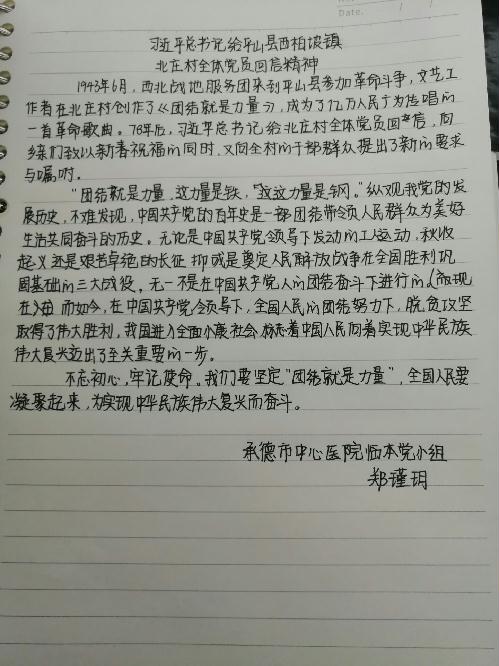 Date.
习近平总书记给平山县西柏坡镇
北庄村全体党员回信精神
1943年6月，西北战地服务团来到平山县参加革命斗争，文艺工
作者在北庄村创作了《团结就是力量》，成为了亿万人民广为传唱的
一首革命歌曲。78年后，习近平总书记给北庄村全体党员回信，向
乡亲们致以新春祝福的同时，又向全村的干部群众提出了新的要求
与嘱咐。
“团结就是力量，这力量是铁，这力量是钢。”纵观我党的发
展历史，不难发现，中国共产党的百年史是一部团结带领人民群众为美好
生活共同奋斗的历史。无论是中国共产党领导下发动的工人运动，秋收
起义还是艰苦卓绝的长征，抑或是奠定人民解放战争在全国胜利巩
固基础的三大战役，无一不是在中国共产党人的团结奋斗下进行的
而如今，在中国共产党领导下，全国人民的团结努力下，脱贫攻坚
取得了伟大胜利，我国进入全面小康社会，标志着中国人民向着实现中华民族
伟大复兴迈出了至关重要的一步。
不忘初心，牢记使命。我们要坚定“团结就是力量”，全国人民要
凝聚起来，为实现中华民族伟大复兴而奋斗。
承德市中心医院临本党小组
郑瑾玥